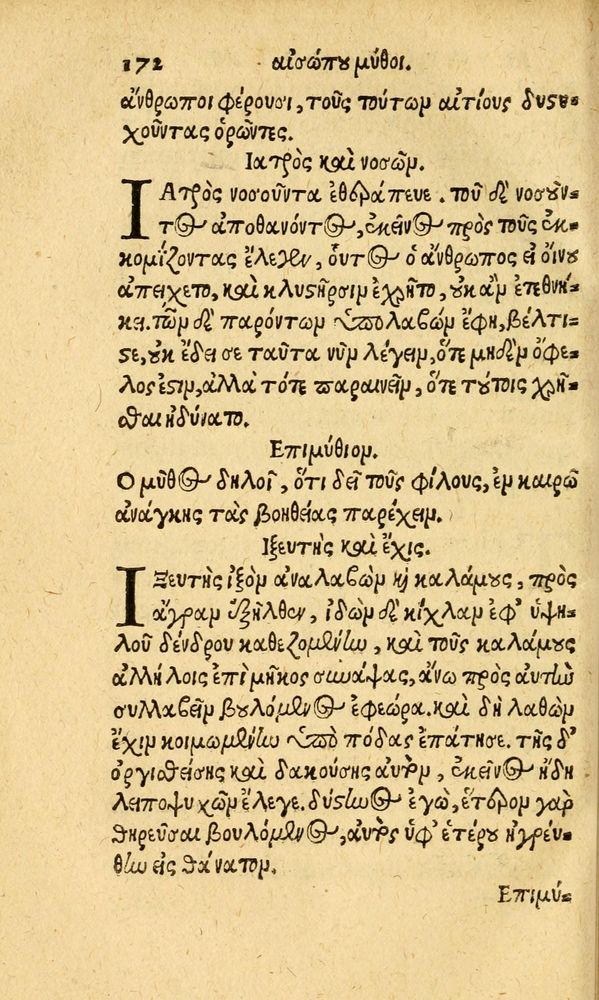 172 αἰσώπου μύθοι.
ἄνθρωποι φέρουσι, τοὺς τούτων αἰτίους δυστυ-
χοῦντας ὁρῶντες.
Ιατρὸς καὶ νοσῶν.
ΙΑτρὸς νοσοῦντα ἐθεράπευε. τοῦ δὲ νοσοῦν-
τος ἀποθανόντος, ἐκεῖνος πρὸς τοὺς ἐκ-
κομίζοντας ἔλεγεν, οὗτος ὁ ἄνθρωπος εἰ οἴνου
ἀπείχετο, καὶ κλυστῆρσιν ἐχρῆτο, οὐκ ἂν ἐτεθνή-
κει. τῶν δὲ παρόντων ὑπολαβών ἔφη, βέλτι-
στε, οὐκ ἔδει σε ταῦτα νῦν λέγειν, ὅτε μηδὲν ὄφε-
λος ἐστιν, ἀλλὰ τότε παραινεῖν, ὅτε τούτοις χρῆ-
σθαι ἠδύνατο.
Επιμύθιον.
Ο μῦθος δηλοῖ, ὅτι δεῖ τοὺς φίλους, ἐν καιρῷ
ἀνάγκης τὰς βοηθείας παρέχειν.
Ιξευτὴς καὶ ἔχις.
ΙΞευτὴς ἰξὸν ἀναλαβὼν καὶ καλάμους, πρὸς
ἄγραν ἐξῆλθεν, ἰδὼν δὲ κίχλαν ἐφ' ὑψη-
λοῦ δένδρου καθεζομένην, καὶ τοὺς καλάμους
ἀλλήλοις ἐπὶ μῆκος συνάψας, ἄνω πρὸς αὐτὴν
συλλαβεῖν βουλόμενος ἐφεώρα. καὶ δὴ λαθὼν
ἔχιν κοιμωμένην ὑπὸ πόδας ἐπάτησε. τῆς δ'
ὀργισθείσης καὶ δακούσης αὐτὸν, ἐκεῖνος ἤδη
λειποψυχῶν ἔλεγε. δύστηνος ἐγὼ, ἕτερον γὰρ
θηρεῦσαι βουλόμενος, αὐτὸς ὑφ' ἑτέρου ἠγρεύ-
θην εἰς θάνατον.
Επιμύ-